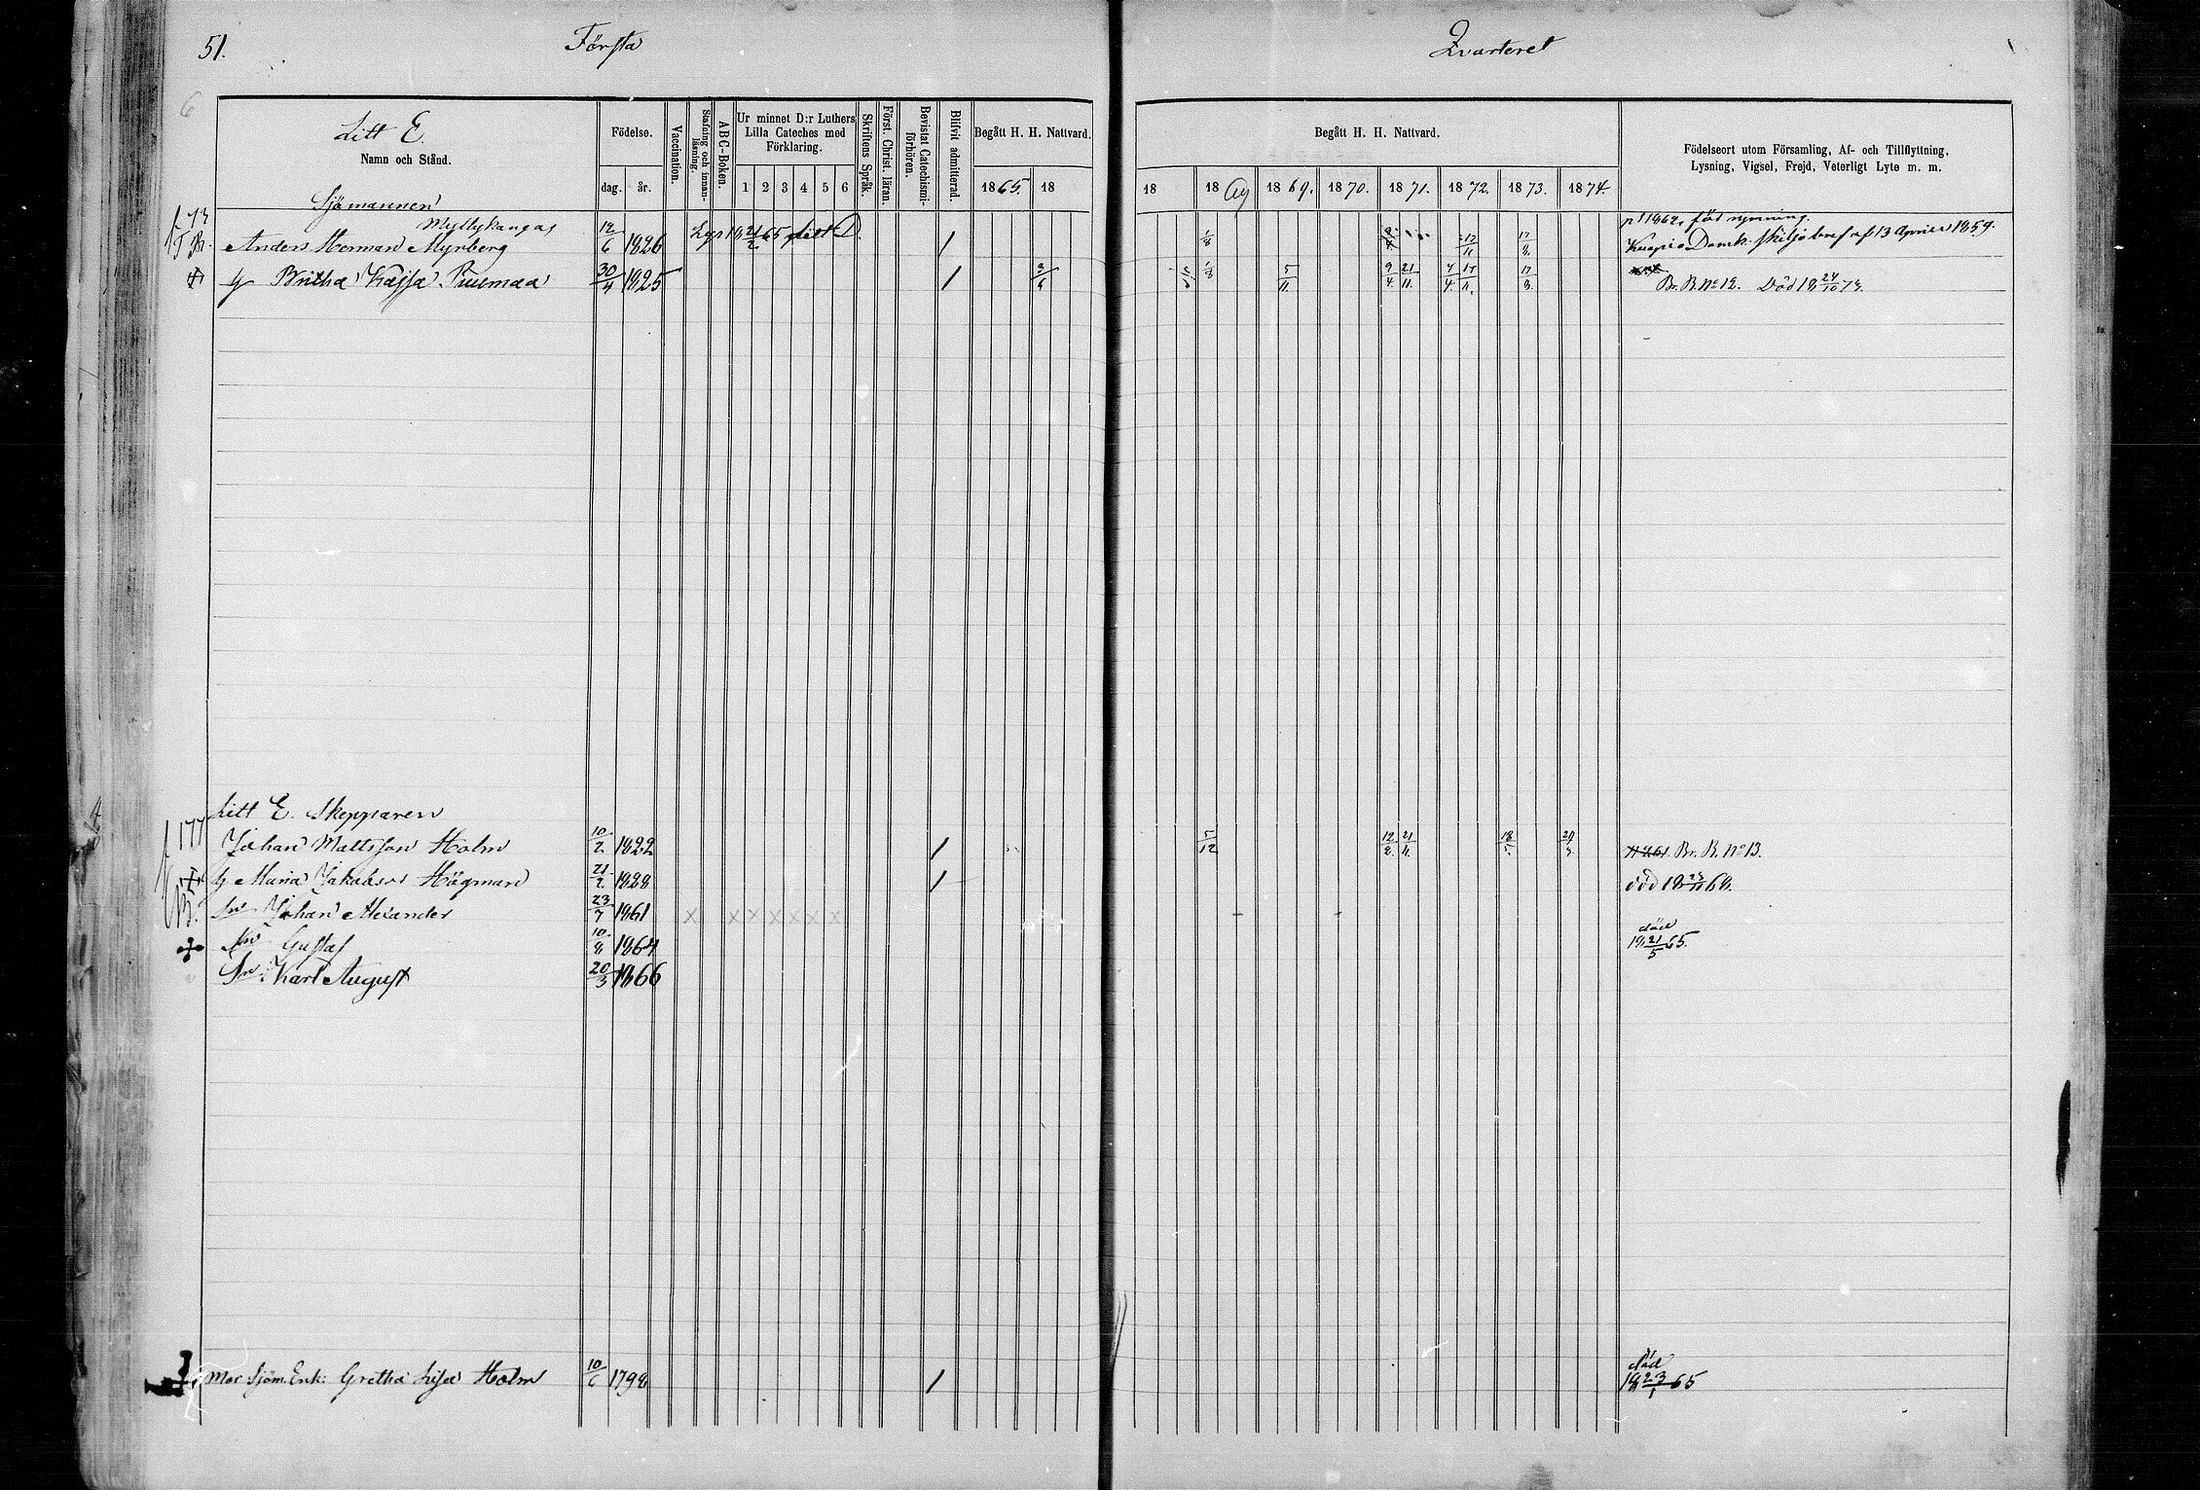 51.
Första
Qvarteret
6
Litt E.
Namn och Stånd.
Födelse.
dag. år.
Vaccination.
Stafning och innanläsning.
ABC-Boken.
Ur minnet D:r Luthers
Lilla Cateches med
Förklaring.
1 2 3 4 5 6
Skriftens Språk.
Först. Christ. läran.
Bevistat Catechismiförhören.
Blifvit admitterad.
Begått H. H. Nattvard.
1865. 18
Begått H. H. Nattvard.
18 18 1869. 1870. 1871. 1872. 1873. 1874.
Födelseort utom Församling, Af- och Tillflyttning,
Lysning, Vigsel, Frejd, Veterligt Lyte m. m.
Sjömannen
Myllykangas
Anders Herman Myrberg 12/6 1826 Lyst 18 21/2 65 Litt D.
1/8 17/11 17/8
1862, för rymning.
Kuopio Domk. skiljobref af 13 April 1859.
Britha Kajsa Ruumaa 30/4 1825
1/8 5/11 9/4 21/11 7/4 17/11 17/8
Br. B. No 12. Död 18 24/10 73.
177
Litt E. Skepparen
Johan Mattsson Holm 10/2 1822
5/12 12/2 21/11 18/5
Br. B. No 13.
Maria Jakobsdr Högman 21/2 1828
död 18 23/11 68.
Sn Johan Alexander 23/7 1861 x x x x x x x
Sn Gustaf 10/8 1864
död
18 21/5 65.
Sn Karl August 20/3 1866
Mor Sjöm. Enk: Gretha Lisa Holm 10/6 1798
död
18 23/1 65